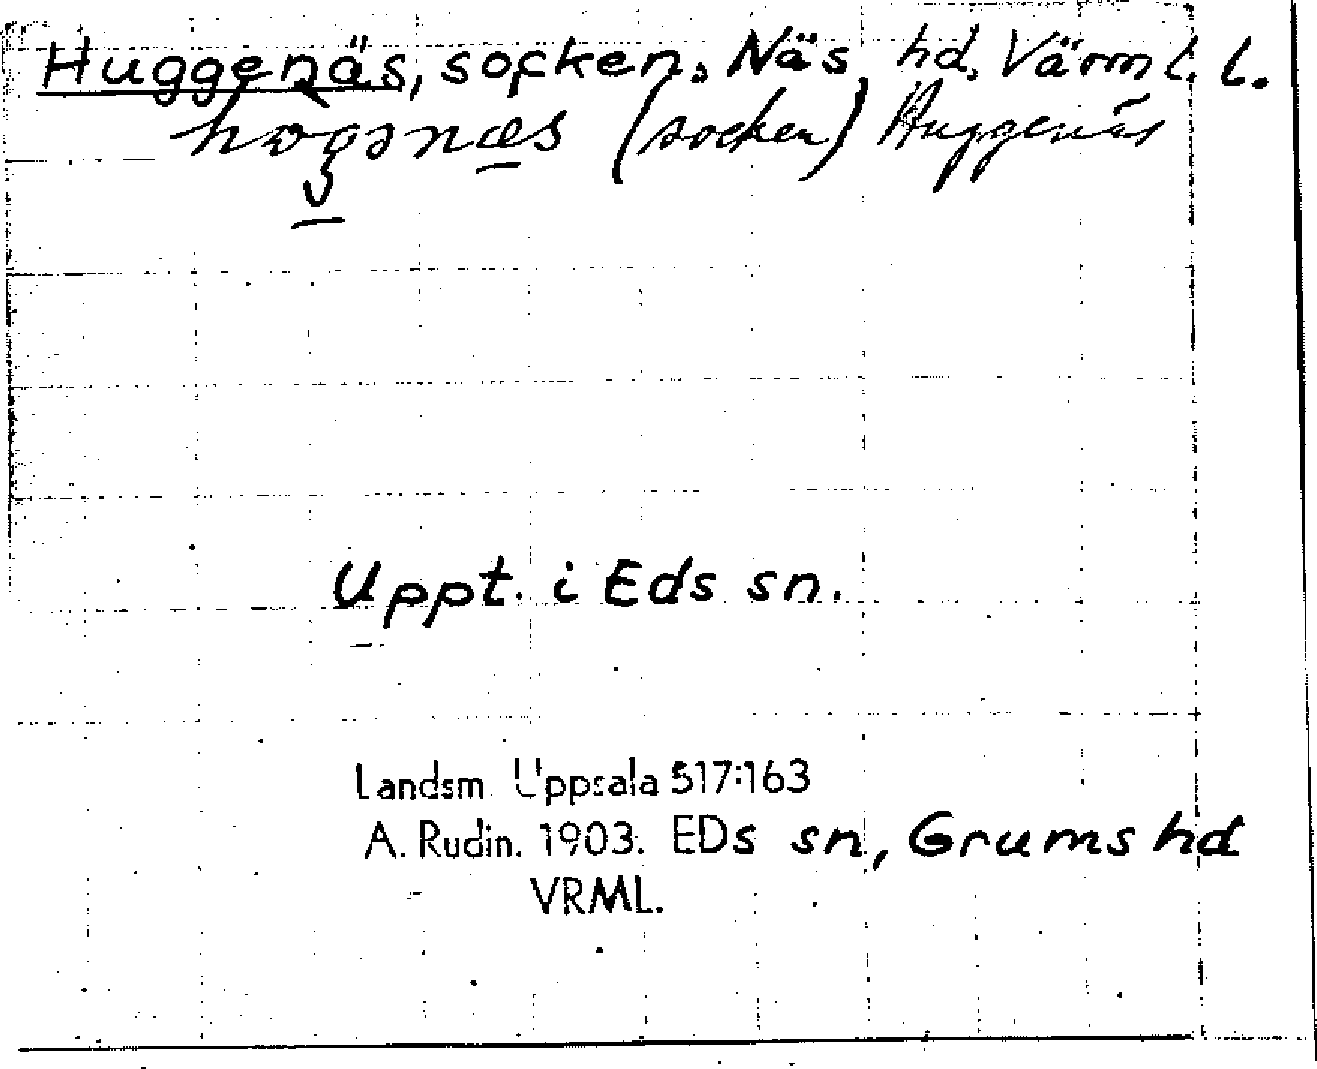 Huggenäs, socken, Näs hd, Värml. l.
hogənæs (socken) Huggenäs
Uppt. i Eds sn.
Landsm Uppsala 517:163
A. Rudin. 1903. EDs sn, Grums hd
VRML.